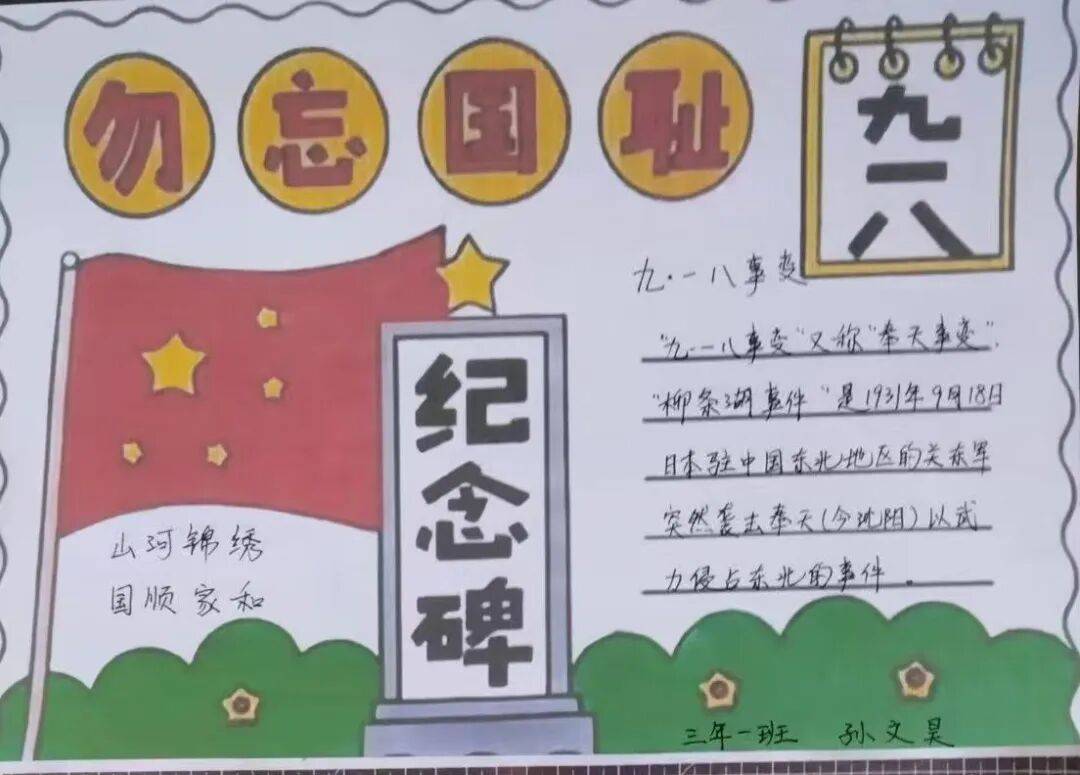 勿忘国耻
九一八
九·一八事变
"九·一八事变"又称"奉天事变".
"柳条湖事件"是1931年9月18日
日本驻中国东北地区的关东军
突然袭击奉天(今沈阳)以武
力侵占东北的事件.
纪念碑
山河锦绣
国顺家和
三年一班 孙文昊